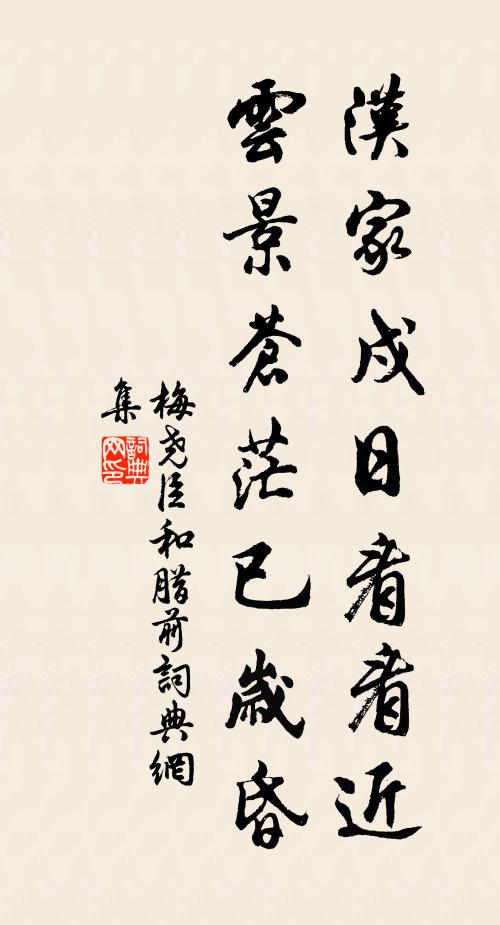 漢家戌日看看近
雲景蒼茫已歲昏
梅堯臣和腊前詞典網
集
詞典網印